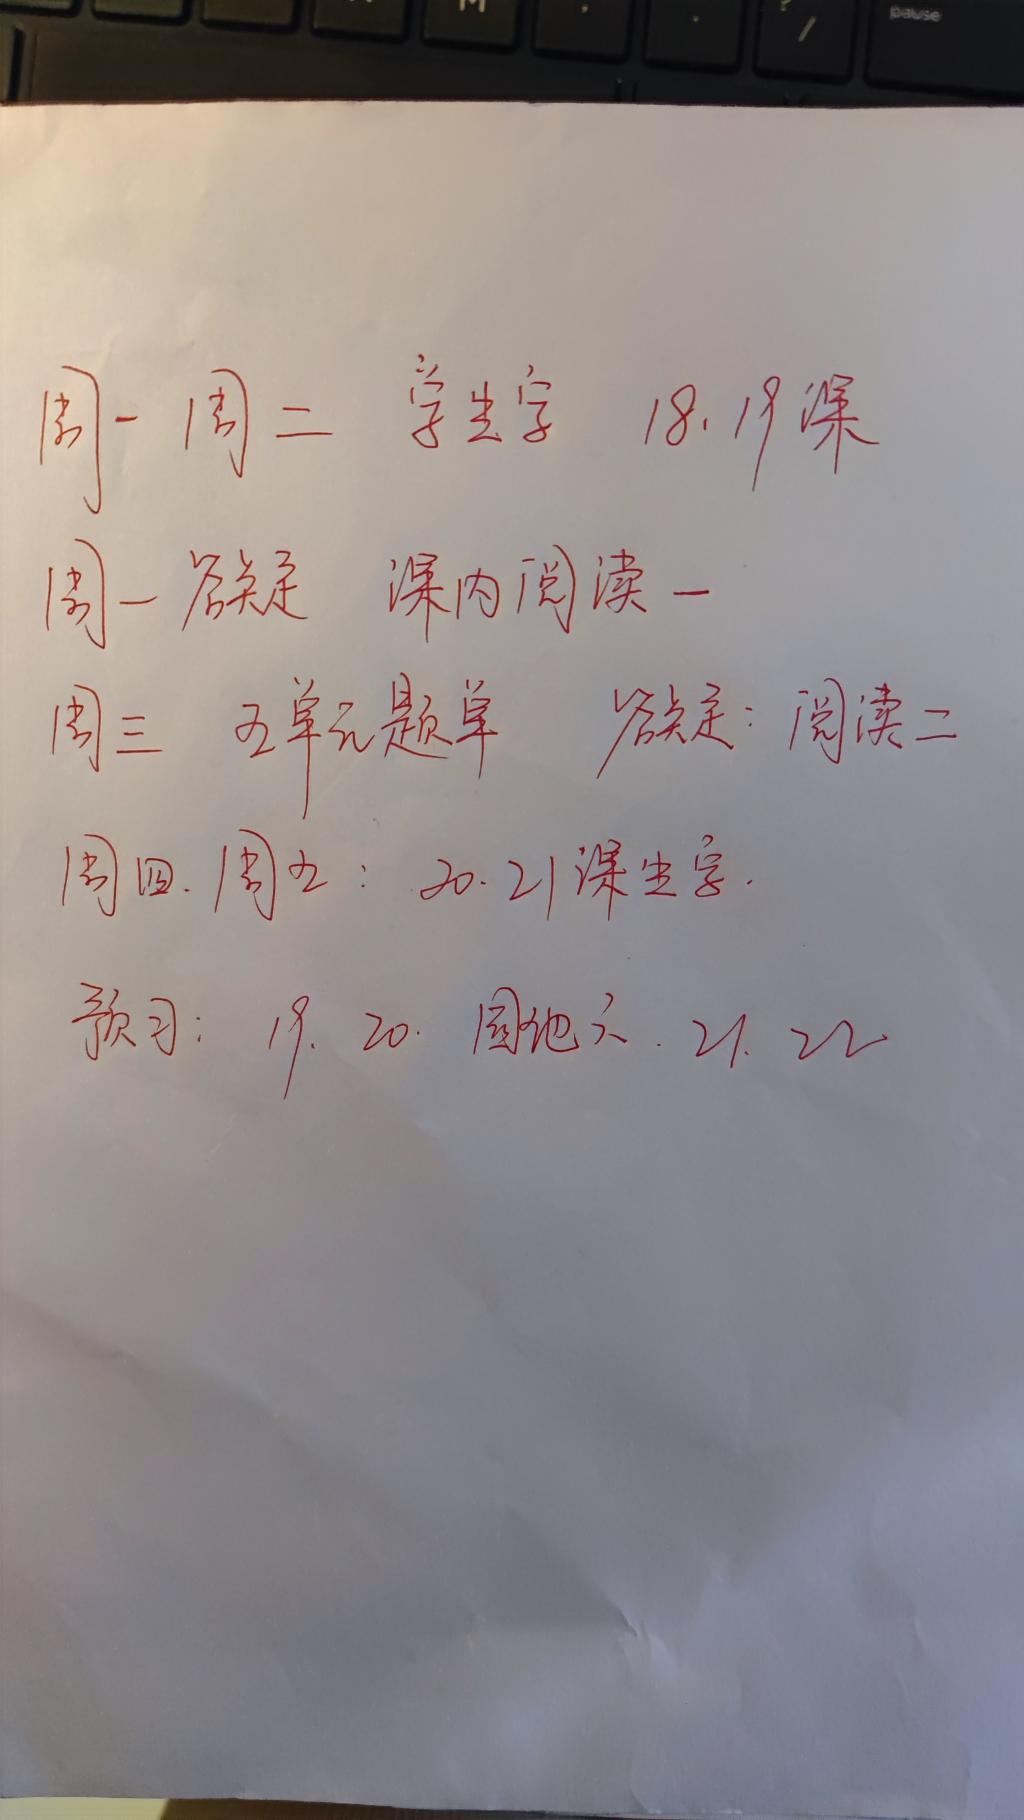 pause
M
周一 周二 学生字 18.19课
周一 答疑 课内阅读一
周三 五单元题单 答疑: 阅读二
周四.周五: 20.21课生字.
预习: 19. 20. 园地六. 21. 22